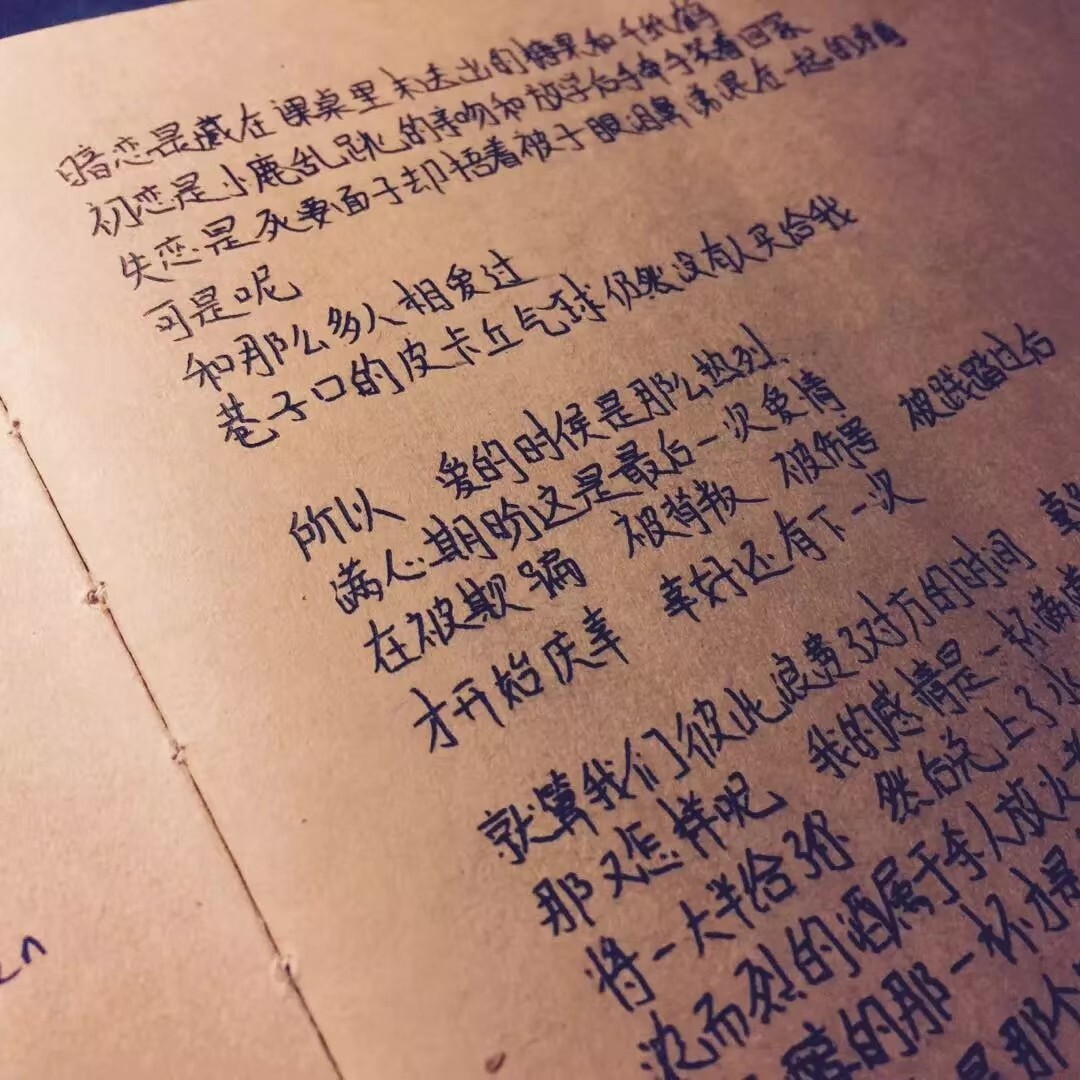 暗恋是藏在课桌里未送出的糖果和千纸鹤
初恋是小鹿乱跳的亲吻和放学后手牵手笑着回家
失恋是死要面子却捂着被子眼泪鼻涕混在一起的矛盾
可是呢
和那么多人相爱过
巷子口的皮卡丘气球仍然没有人买给我
所以 爱的时侯是那么热烈
满心期盼这是最后一次爱情
在被欺骗 被背叛 被伤害 被践踏过后
才开始庆幸 幸好还有下一次
就算我们彼此浪费了对方的时间
那又怎样呢 我的感情是一杯满
将一大半给了你 然后兑上了水
浓而烈的酒属于杀人放火
醇的那一杯才是
是那个